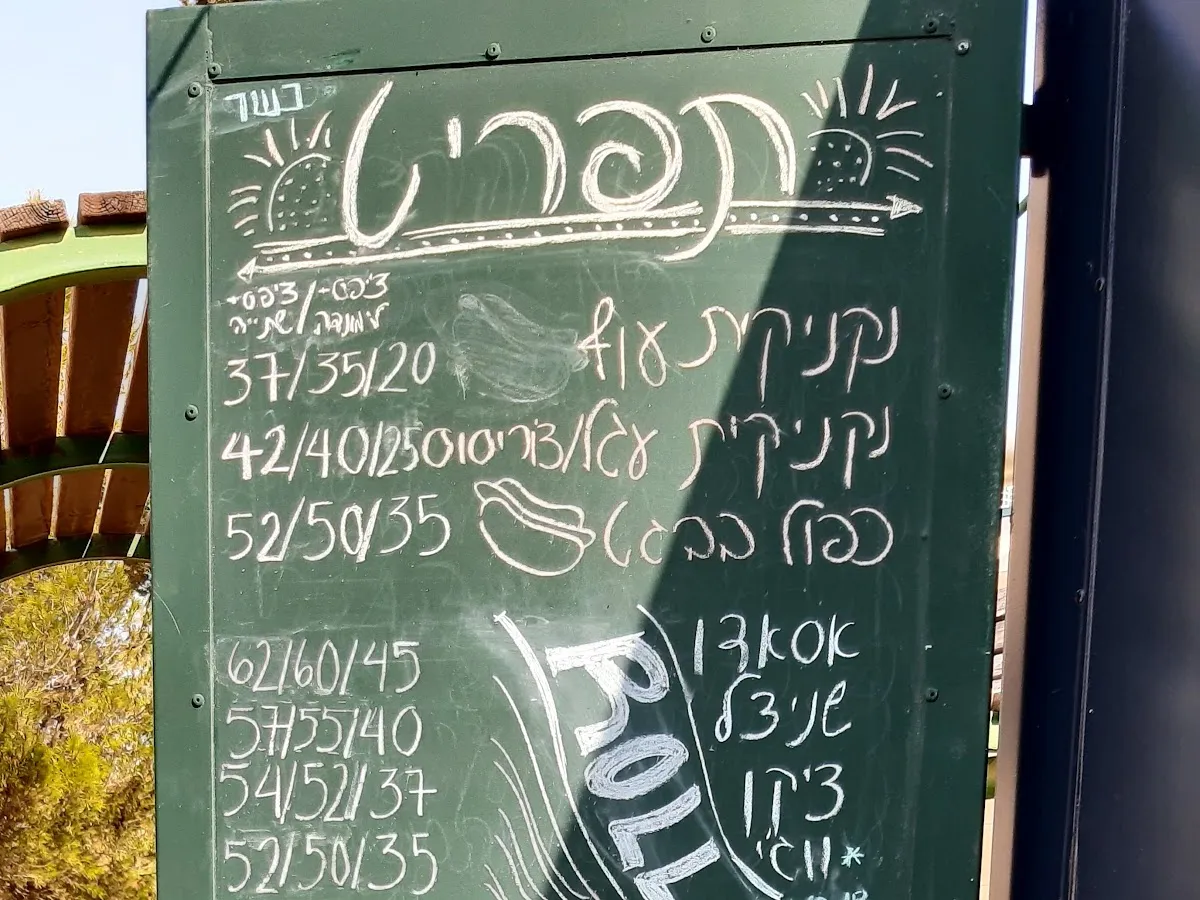 כשר
תפריט
צ'יפס+ / צ'יפס+
לימונדה / שתייה
נקניקית עוף 37/35/20
נקניקית עגל/צ'וריסוס 42/40/25
כפול בבגט 52/50/35
ROLL
אסאדו 62/60/45
שניצל 57/55/40
ציקן 54/52/37
*ווג'י 52/50/35